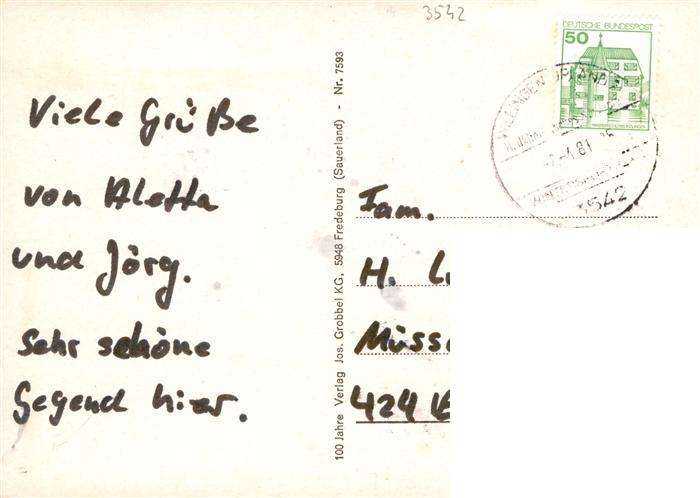 3542
DEUTSCHE BUNDESPOST
50
3542
Viele Grüße
von Aletta
und Jörg.
Sehr schöne
Gegend hier.
100 Jahre Verlag Jos. Grobbel KG, 5948 Fredeburg (Sauerland) - Nr. 7593
Fam.
H. L
Müss
424